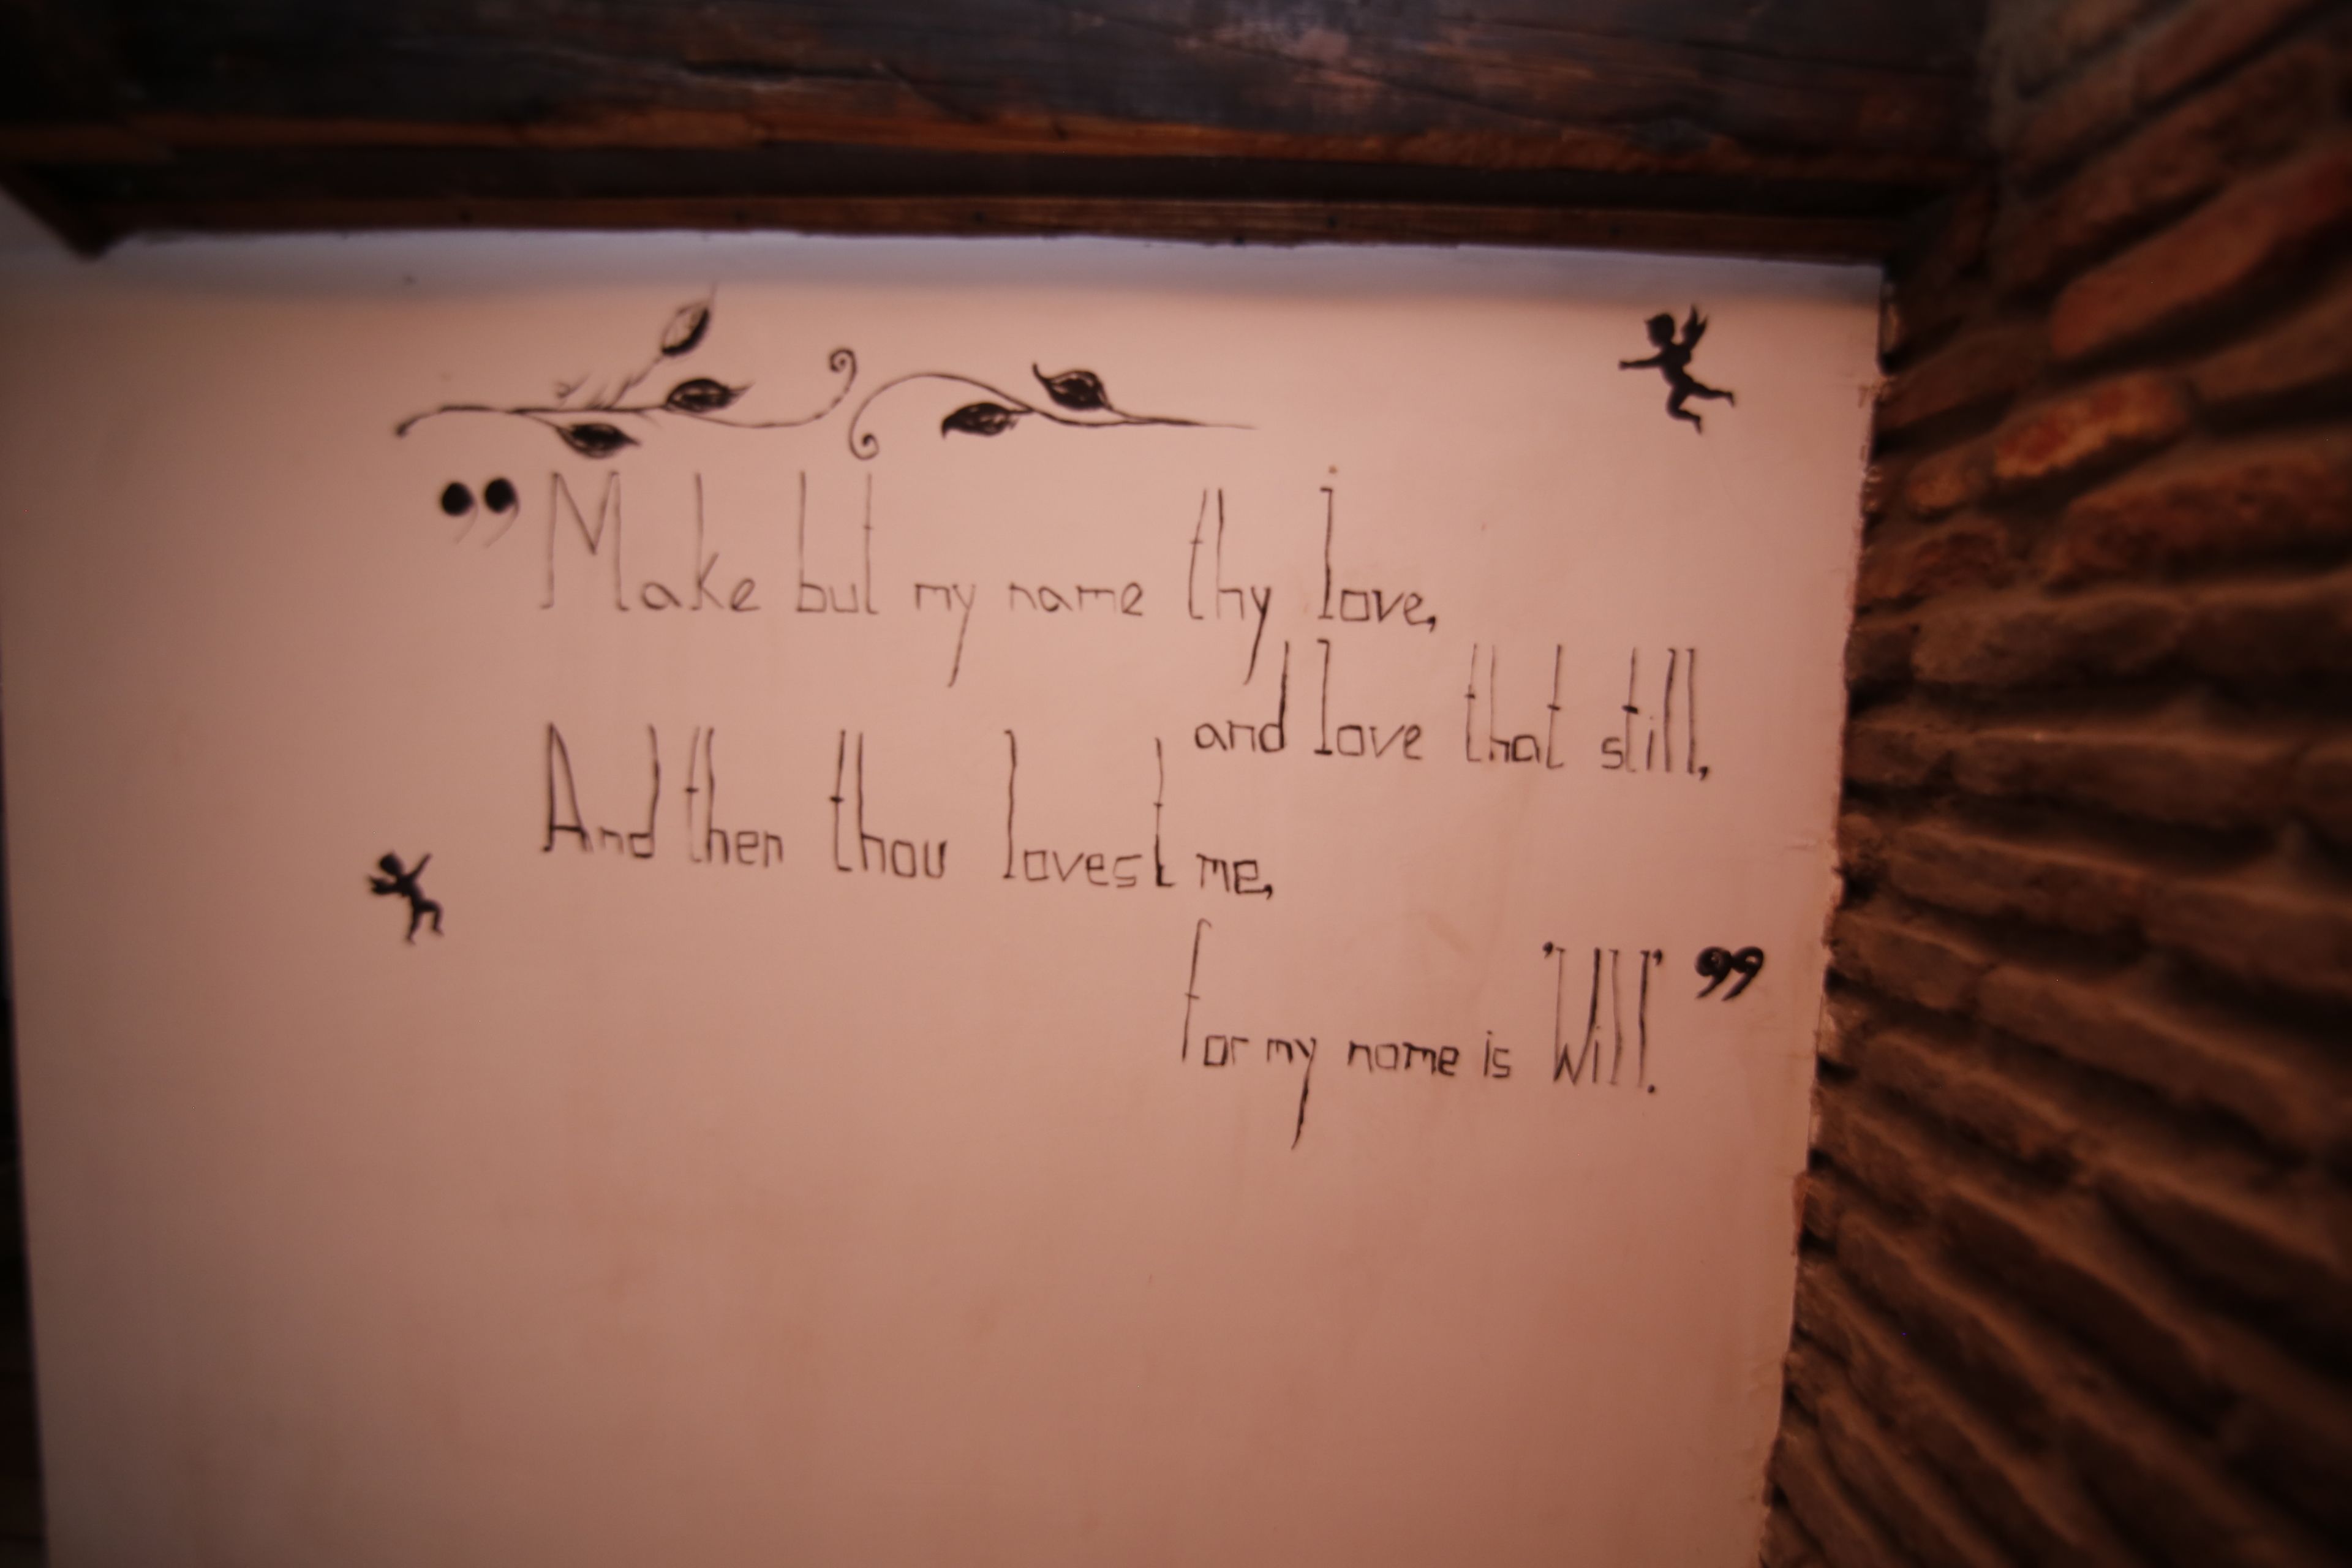 ”Make but my name thy love,
and love that still,
And then thou lovest me,
for my name is 'Will'.”